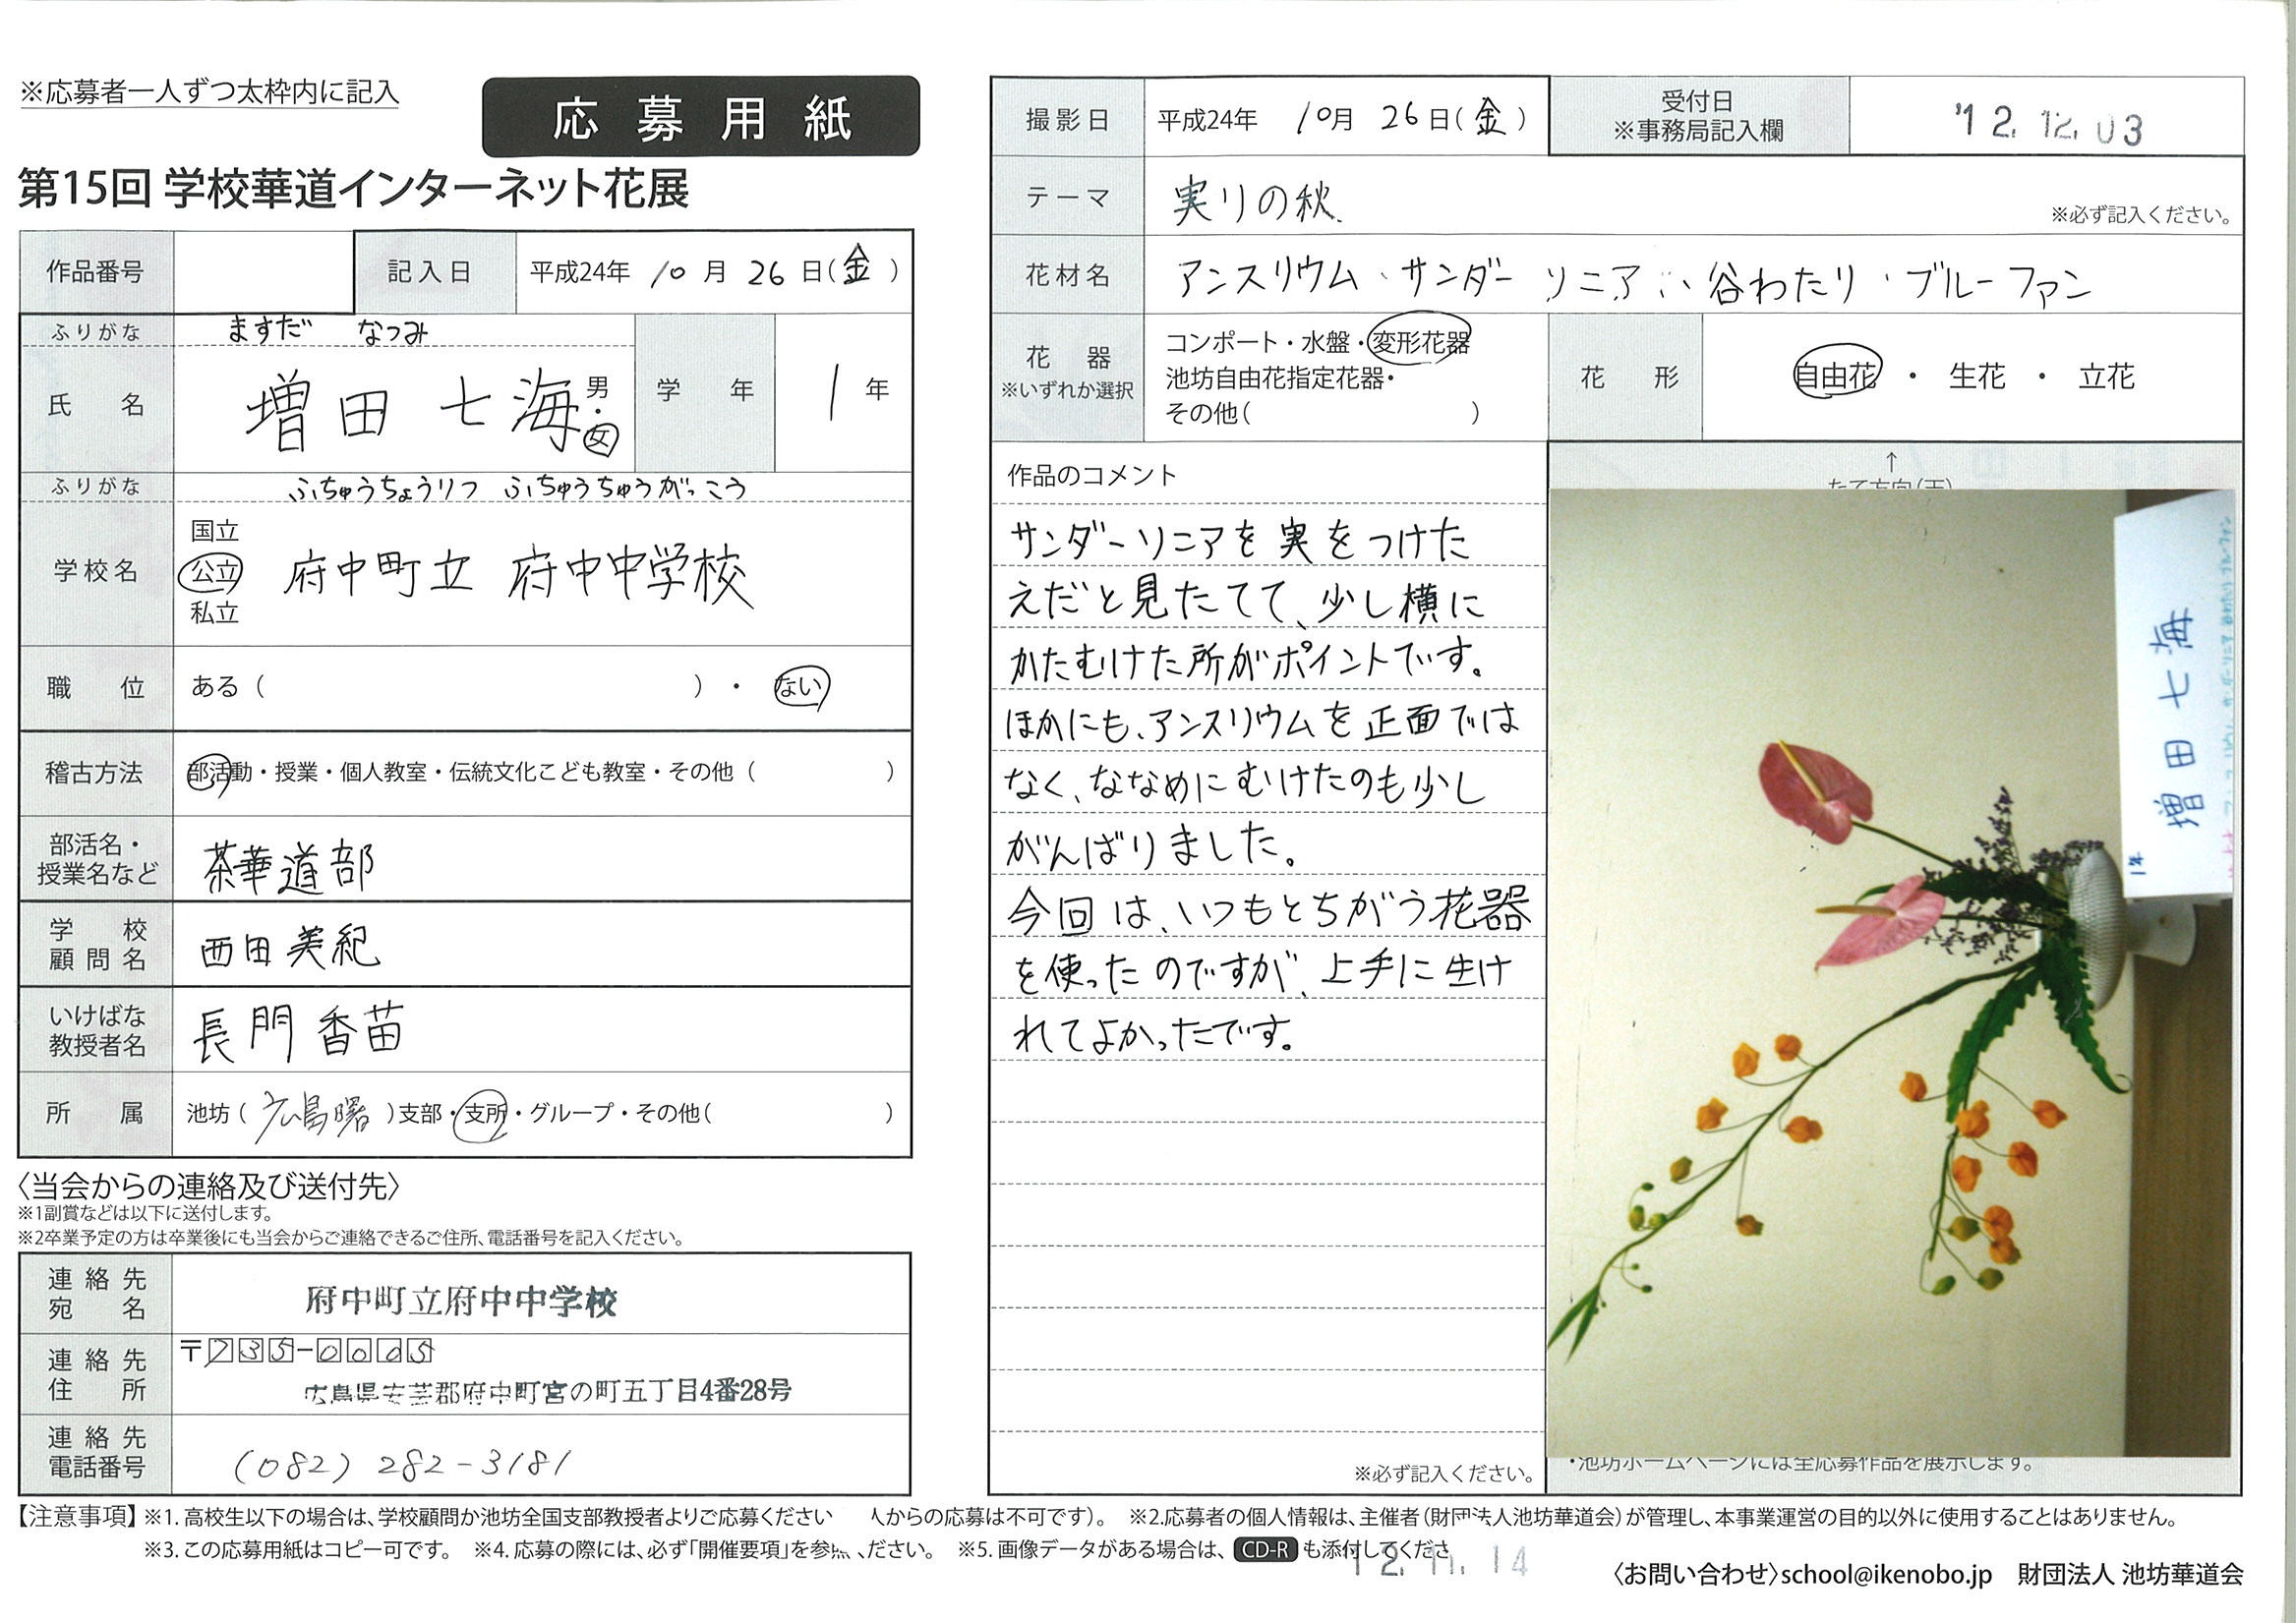 ※応募者一人ずつ太枠内に記入
応募用紙
第15回 学校華道インターネット花展
作品番号
記入日 平成24年 10月 26日(金)
ふりがな ますだ なつみ
氏名 増田 七海 男・女
学年 1年
ふりがな ふちゅうちょうりつ ふちゅうちゅうがっこう
学校名 国立 公立 私立 府中町立 府中中学校
職位 ある( )・ない
稽古方法 部活動・授業・個人教室・伝統文化こども教室・その他( )
部活名・授業名など 茶華道部
学校顧問名 西田美紀
いけばな教授者名 長門香苗
所属 池坊(広島曙)支部・支所・グループ・その他( )
〈当会からの連絡及び送付先〉
※1副賞などは以下に送付します。
※2卒業予定の方は卒業後にも当会からご連絡できるご住所、電話番号を記入ください。
連絡先宛名 府中町立府中中学校
連絡先住所 〒735-0005
広島県安芸郡府中町宮の町五丁目4番28号
連絡先電話番号 (082) 282-3181
撮影日 平成24年 10月 26日(金)
受付日 ※事務局記入欄 '12.12.03
テーマ 実りの秋
※必ず記入ください。
花材名 アンスリウム・サンダーソニア・谷わたり・ブルーファン
花器 ※いずれか選択
コンポート・水盤・変形花器
池坊自由花指定花器・
その他( )
花形 自由花・生花・立花
作品のコメント
サンダーソニアを実をつけた
えだと見たてて、少し横に
かたむけた所がポイントです。
ほかにも、アンスリウムを正面では
なく、ななめにむけたのも少し
がんばりました。
今回は、いつもとちがう花器
を使ったのですが、上手に生け
れてよかったです。
※必ず記入ください。
↑
たて方向(天)
1年
増田七海
・池坊ホームページには全応募作品を展示します。
【注意事項】※1.高校生以下の場合は、学校顧問か池坊全国支部教授者よりご応募ください 人からの応募は不可です)。 ※2.応募者の個人情報は、主催者(財団法人池坊華道会)が管理し、本事業運営の目的以外に使用することはありません。
※3.この応募用紙はコピー可です。 ※4.応募の際には、必ず「開催要項」を参照ください。 ※5.画像データがある場合は、CD-Rも添付してくださ
12.11.14
〈お問い合わせ〉school@ikenobo.jp 財団法人 池坊華道会